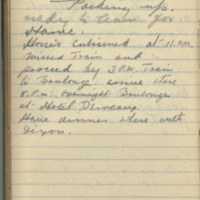 Packing up.
ready to leave for
Home.
Horses entrained at 11 A.M.
missed train and
proceed by 3 P.M. Train
to Boulogne. arrive there
8 P.M. overnight Boulogne
at Hotel
Have dinner there with
Dixon.